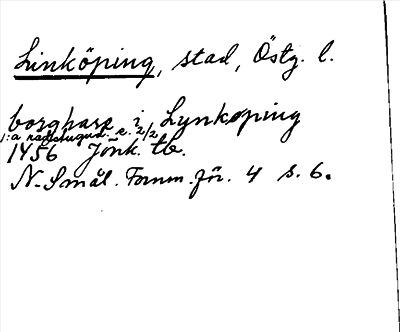 Linköping, stad, Östg. l.
borghare i Lynkøping
1:a rådstugud. e. 2/2
1456 Jönk. tb.
N-Smål. Fornm.för. 4 s. 6.